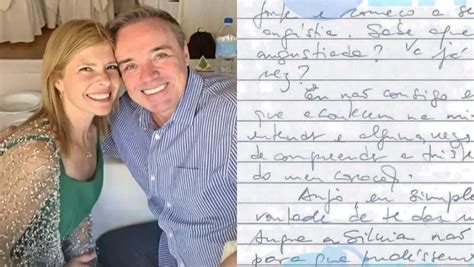 e começo a se
angústia. Sabe aque
angustiada? Vc já
vez?
Eu não consigo e
que acontecem na mi
entendo e algumas vezes
de compreender a triste
do meu coração.
Anjo, eu simples
vontade de te dar
a não
para que pudéssemos